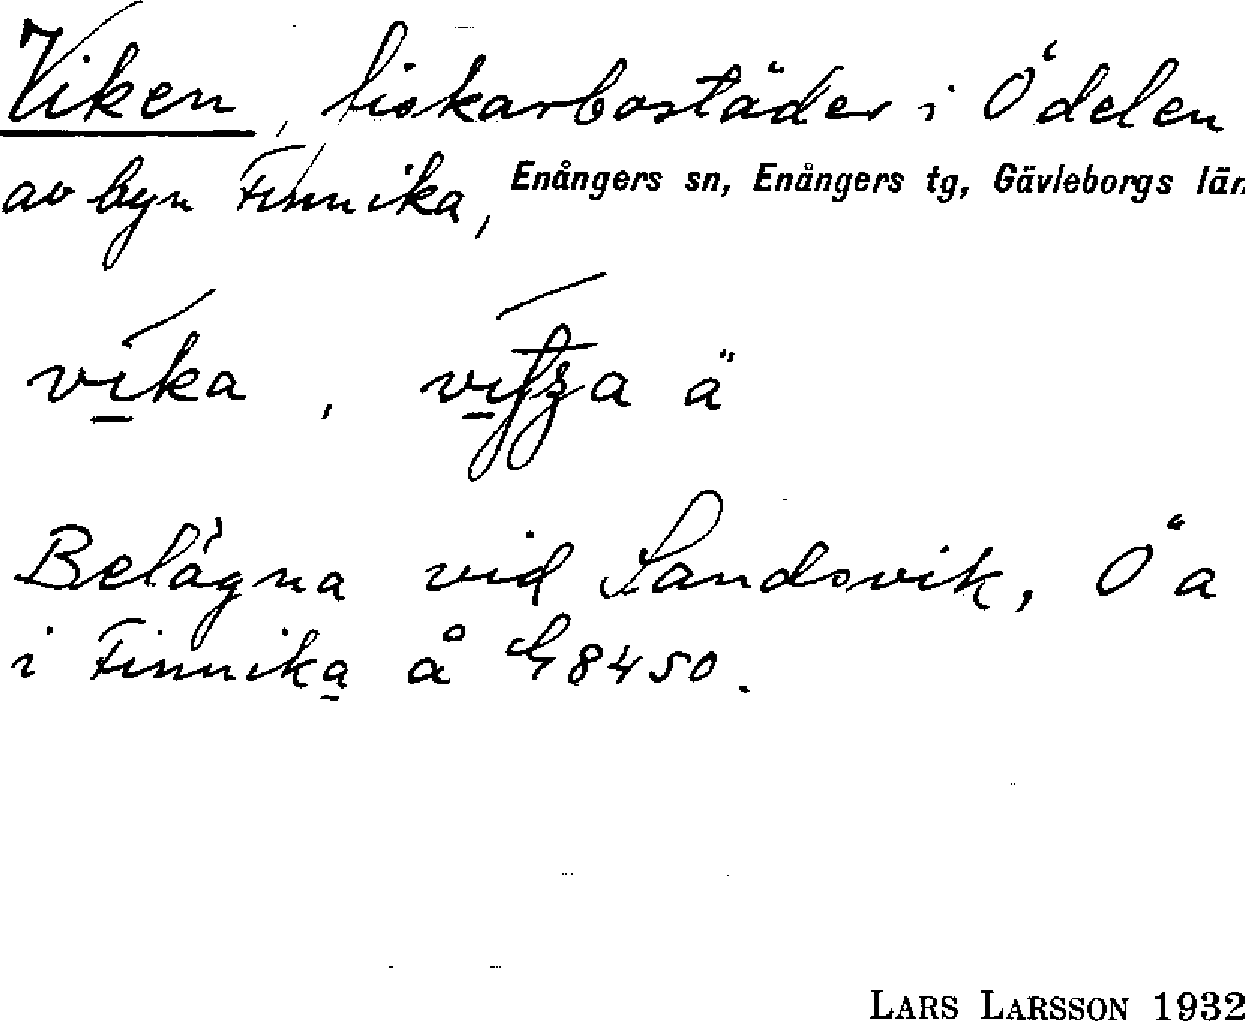 Viken, fiskarbostäder i Ö delen
av byn Finnika, Enångers sn, Enångers tg, Gävleborgs län
vika, ä
Belägna vid Sandsvik, Ö a
i Finnika å G8450.
LARS LARSSON 1932